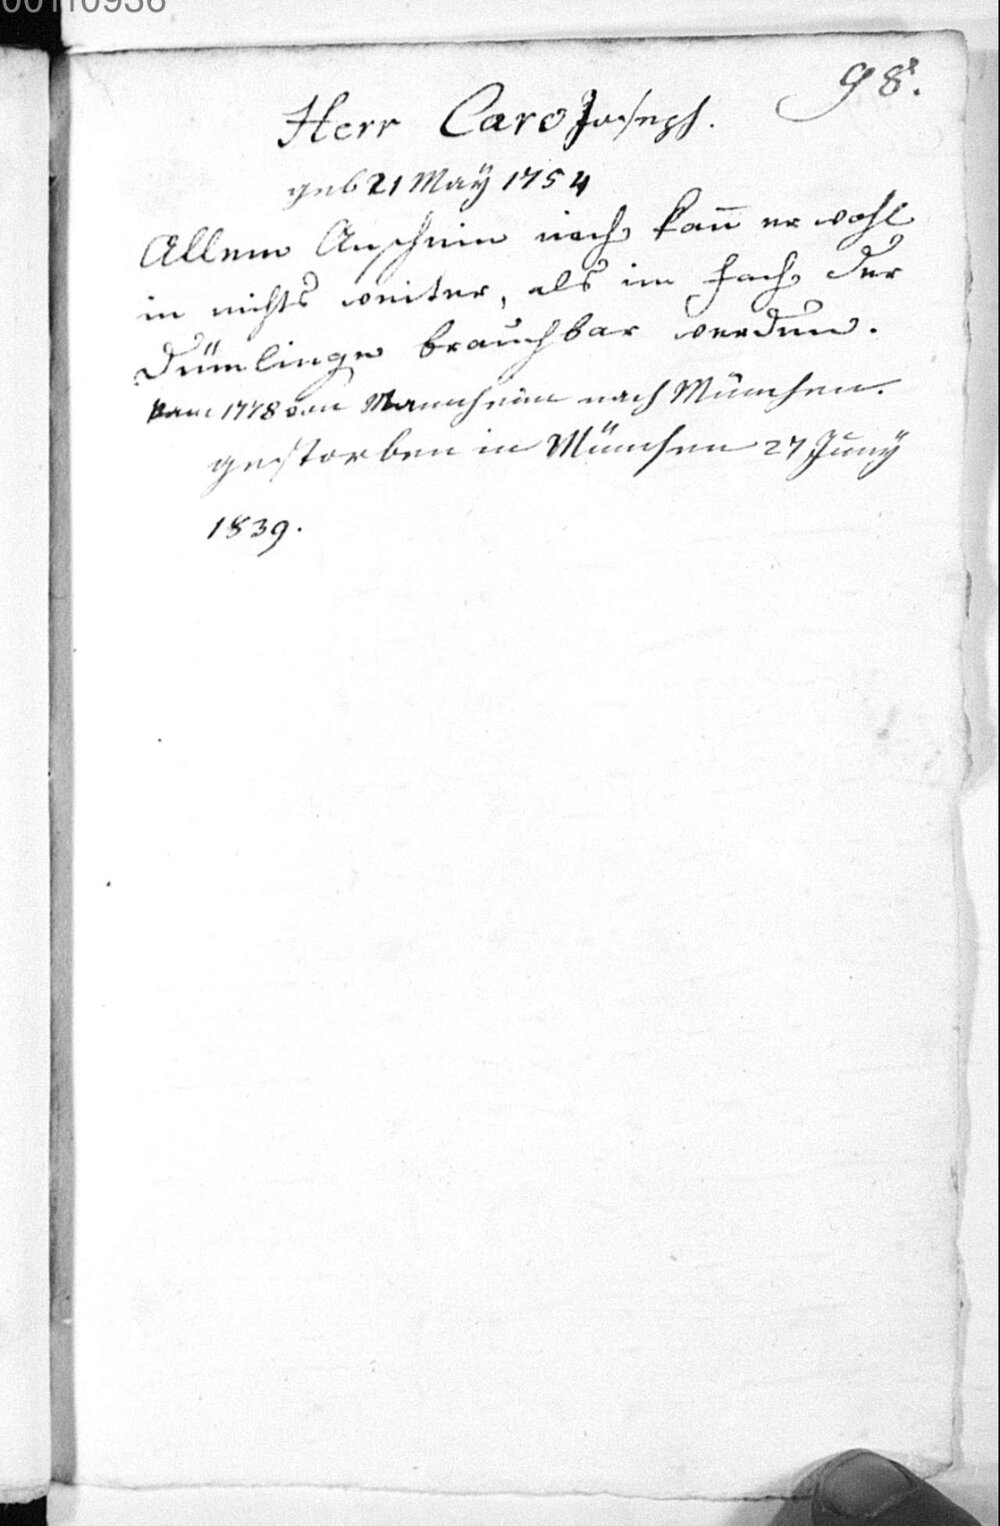 00110936
98.
Herr Caro Joseph.
geb 21 Maÿ 1754
Allem Anschein nach kan̄ er wohl
in nichts weiter, als im Fach der
Dümlinge brauchbar werden.
kam 1778 von Mannheim nach München.
gestorben in München 27 Junÿ
1839.